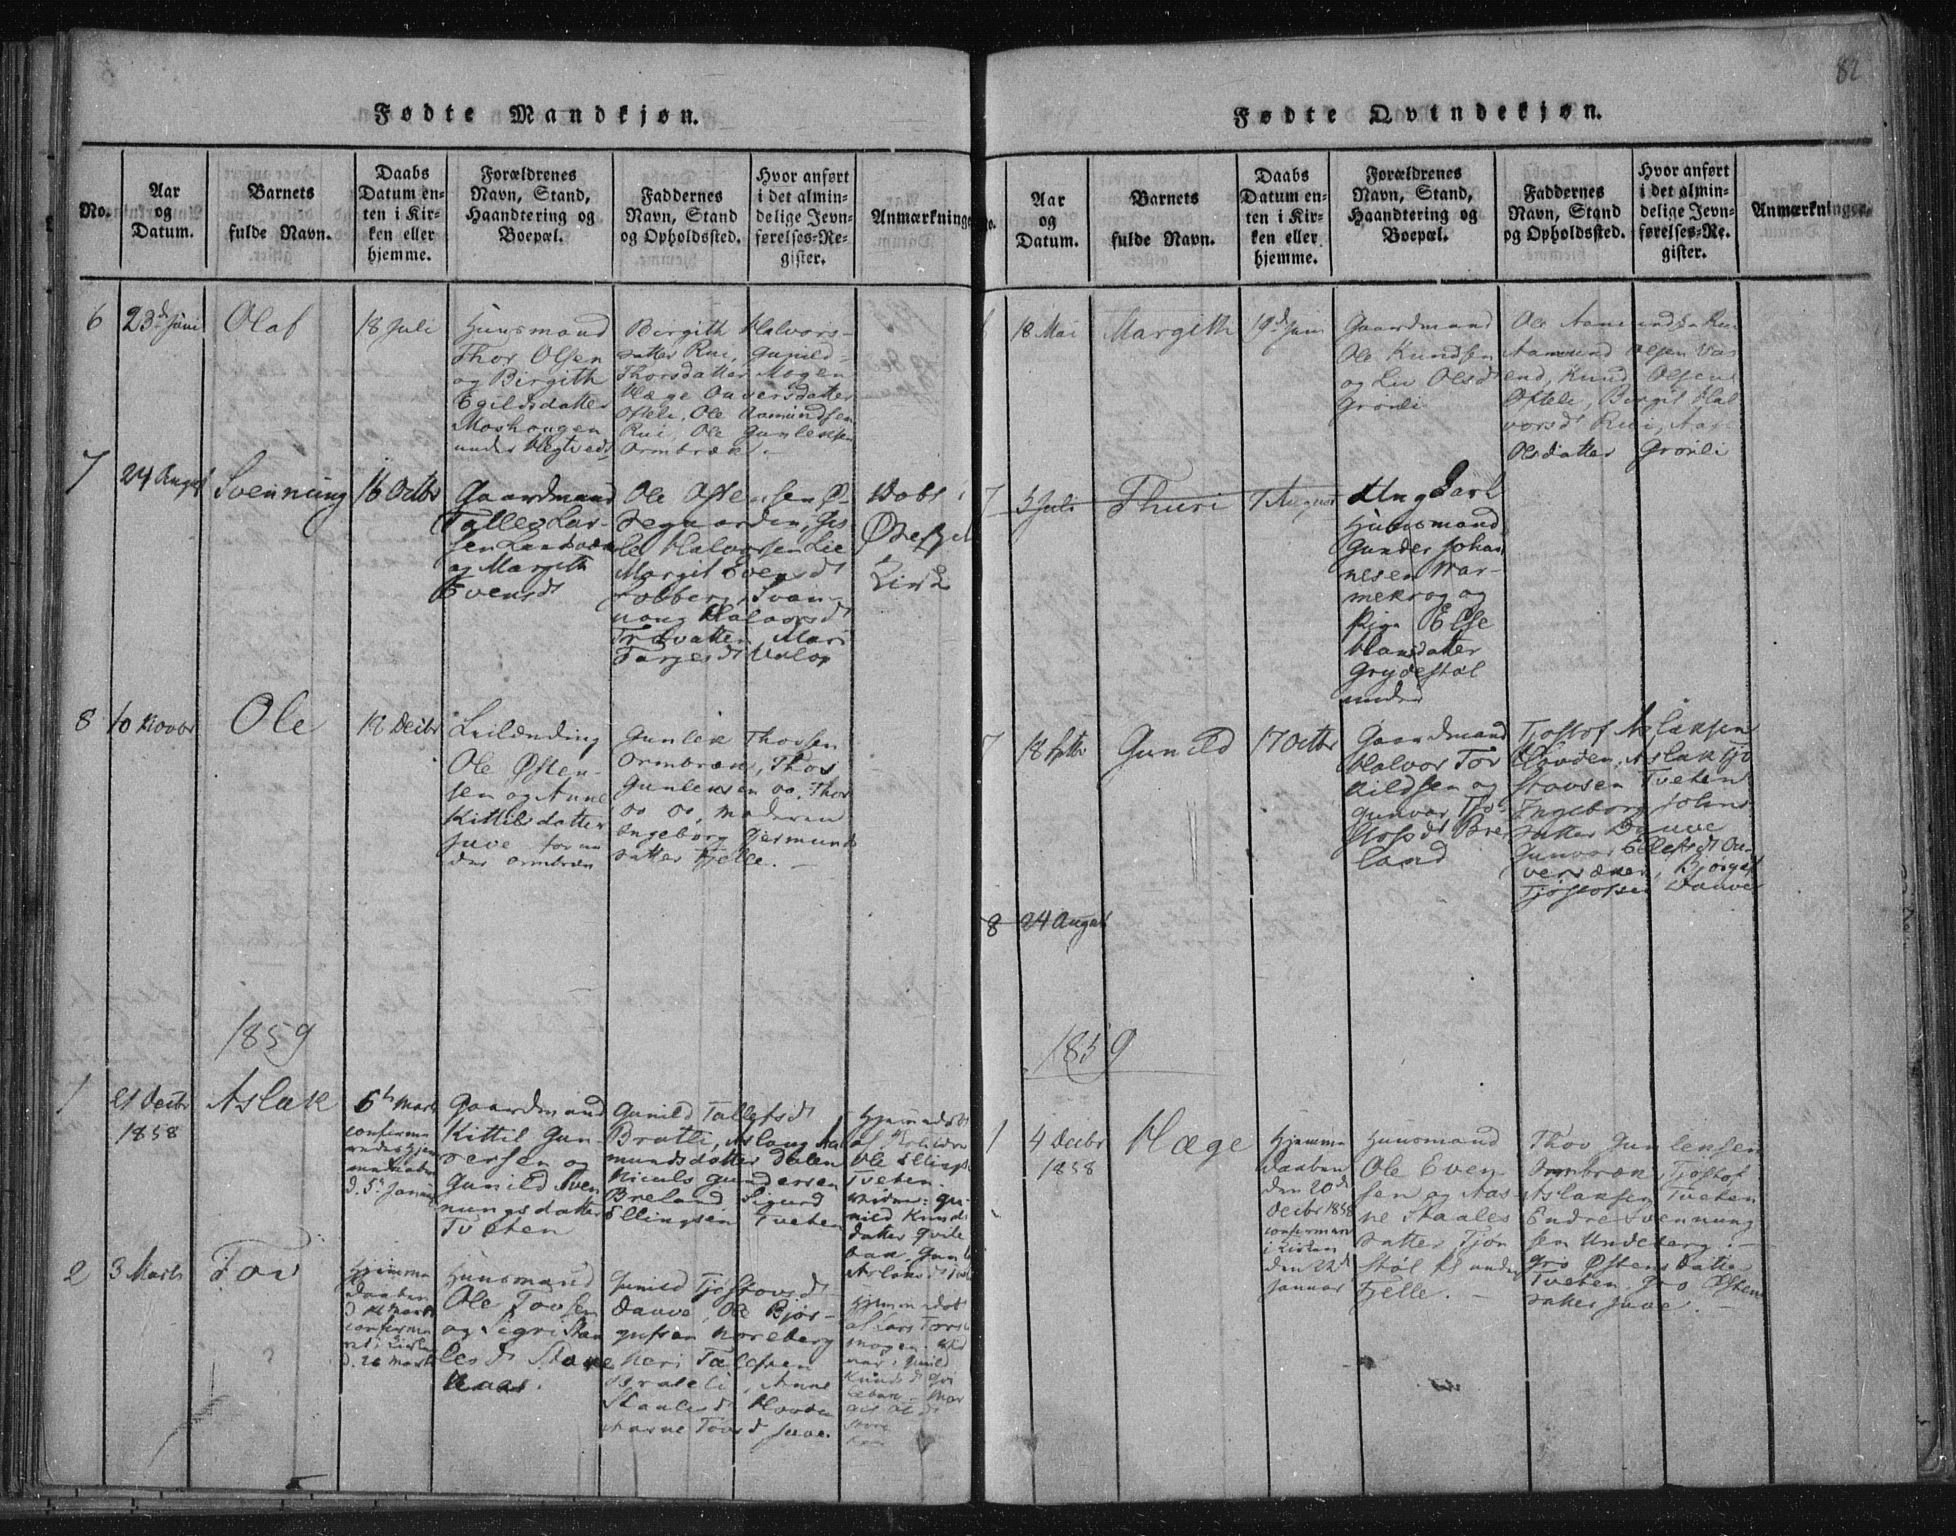 82
Fødte Mandkjøn.
No.
Aar
og
Datum.
Barnets
fulde Navn.
Daabs
Datum en-
ten i Kir-
ken eller
hjemme.
Forældrenes
Navn, Stand,
Haandtering og
Boepæl.
Faddernes
Navn, Stand
og Opholdssted.
Hvor anført
i det almin-
delige Jevn-
førelses-Re-
gister.
Anmærkninger
6
23d Juni
Olaf
18 Juli
Huusmand
Thor Olsen
og Birgith
Egilsdatter
Moshaugen
under Hegtvedt
Birgith Halvors-
datter Rui, Gunild
Thorsdatter Mogen
Hæge Anversdatter
Ofteli, Ole Aamundsen
Rui, Ole Gunleksen
Ormbræk.
7
24 August
Svennung
16 Octbr
Gaardmand
Tallef Lar-
sen
og Margith
Evensdt
Ole Østensen Ø-
degaarden, Gis-
le Halvorsen Lie
Margit Evensdt
Svan-
noug Halvorsdt
Trovatten, Mari
Targesdt Valop
Døbt i
Kirke
8
10 Novbr
Ole
18 Decbr
Leilænding
Ole Østen-
sen og Anne
Kittilsdatter
Juve for un
der Ormbræk
Gunlek Thovsen
Ormbræk, Thov
Gunleksen oo, Thor
oo oo, Moderen
Ingeborg Germunds
datter Fjelle. -
1859
1
21 Decbr
1858
Aslak
6te Marts
conferme
redes hjem
medaaben
d. 5te Januar
Gaardmand
Kittil Gun-
dersen og
Gunild Sven
nungsdatter
Tveten
Gunild Tallefsdt
Bratli, Aslaug Aa
mundsdatter Dalen
Niculs Gundersen
Breland Sigurd
Ellingsen Tveten
Hjemmedøbt
af
Ole Ellings
Tveten.
Vidner: Gu-
nild Knuds
datter Qvile
bæk, Gunild
Aslaksdt
2
3 Marts
Tov
Hjemme
daaben
d. 16 Marts
conferme
ret i Kirken
d. 26 Marts
Huusmand
Ole Tovsen
og Sigri Staa
lesdt
Gunild Tjøstovsdt
Dauve, Ole Bjør-
gufsen Noreberg
Neri Talefsen
Brateli, Anne
Staalesdt Hovden
Aarne Tovsd Juve.
Hjemmedøbt
af Lars Tors
mogen. Vid
ner: Gunild
Knudsdt Qvi
lebæk - Mar
git Olsdt
Fødte Qvindekjøn.
No.
Aar
og
Datum.
Barnets
fulde Navn.
Daabs
Datum en-
ten i Kir-
ken eller
hjemme.
Forældrenes
Navn, Stand,
Haandtering og
Boepæl.
Faddernes
Navn, Stand
og Opholdssted.
Hvor anført
i det almin-
delige Jevn-
førelses-Re-
gister.
Anmærkninger.
18 Mai
Margith
19d Juni
Gaardmand
Ole Knudsen
og Liv Olsdt
Grønli
Ole Aamundsen Rui
Aamund Olsen Vas
end, Knud Olsen
Ofteli, Birgit Hal
vorsdt Rui, Aase
Olsdatter Grønli
7
5 Juli
Thuri
7 August
Ungkarl
Huusmand
Gunder Johan
nesen Var-
mekrog og
Pige Else
Hansdatter
Grydestøl
under
7
18 Septbr
Gunild
17 Octbr
Gaardmand
Halvor Tor
kildsen og
Gunvor Tjø-
stofsdt Bre
land
Tjøstof Aslaksen
Hovden, Aslak Tjø
stovsen Tveten
Ingeborg Johns
datter Dauve
Gunvor Ellefsdt On-
versæker, Bjørgu
Tjøstofsen Dauve
8
24 August
1859
1
4 Decbr
1858
Hæge
Hjemme
daaben
den 20d
Decbr 1858
conferman
i Kirken
den 22d
Januar
Huusmand
Ole Even
sen og Aas-
ne Staales
datter Tjøn
støl Pl under
Fjelle. -
Thov Gunleksen
Ormbræk, Tjøstof
Aslaksen Tveten
Endre Svennung
sen Undeberg. -
Gro Østensdatter
Tveten, Gro Østens
datter Juve. -